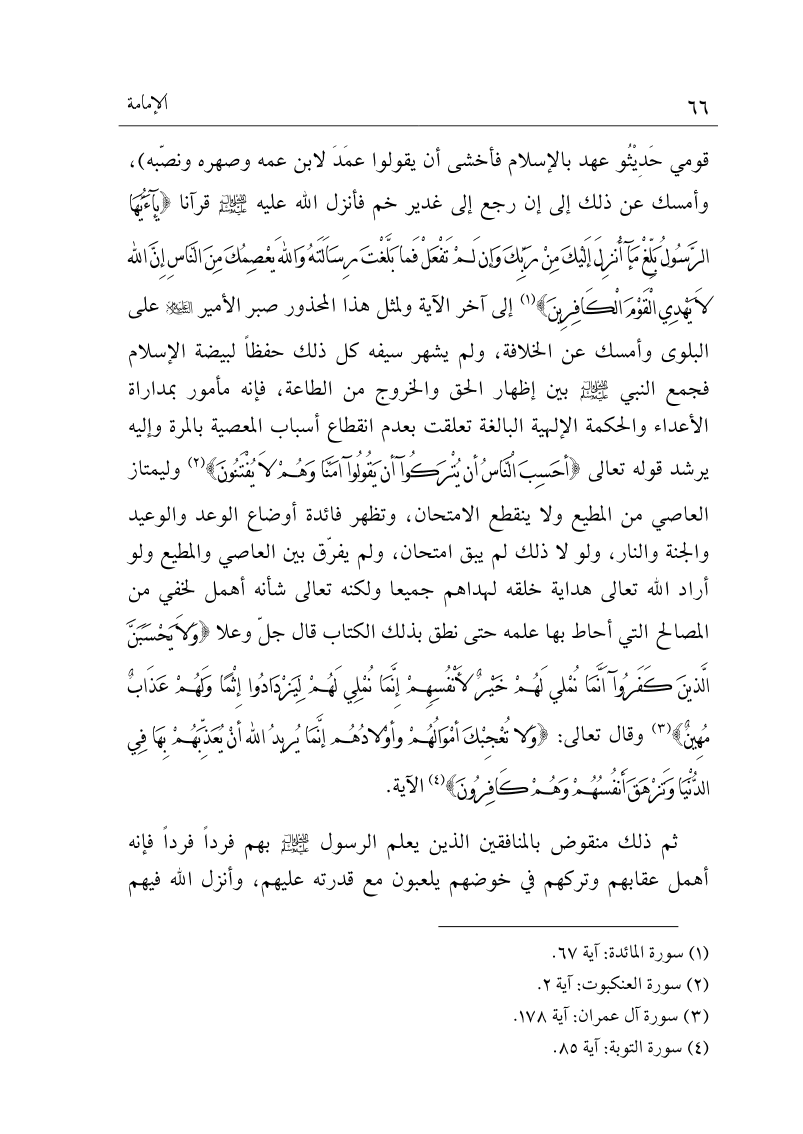 ٦٦ الإمامة
قومي حَدِيْثُو عهد بالإسلام فأخشى أن يقولوا عمَدَ لابن عمه وصهره ونصّبه)،
وأمسك عن ذلك إلى إن رجع إلى غدير خم فأنزل الله عليه ﷺ قرآنا ﴿يَآءَيُّهَا
الرَّسُولُ بَلِّغْ مَآ أُنزِلَ إِلَيْكَ مِنْ رَبِّكَ وَإِن لَّمْ تَفْعَلْ فَما بَلَّغْتَ رِسَالَتَهُ وَاللهُ يَعْصِمُكَ مِنَ النَّاسِ إِنَّ اللهَ
لاَ يَهْدِي الْقَوْمَ الْكَافِرِينَ﴾(١) إلى آخر الآية ولمثل هذا المحذور صبر الأمير عليه السلام على
البلوى وأمسك عن الخلافة، ولم يشهر سيفه كل ذلك حفظاً لبيضة الإسلام
فجمع النبي ﷺ بين إظهار الحق والخروج من الطاعة، فإنه مأمور بمداراة
الأعداء والحكمة الإلهية البالغة تعلقت بعدم انقطاع أسباب المعصية بالمرة وإليه
يرشد قوله تعالى ﴿أَحَسِبَ النَّاسُ أَن يُتْرَكُوآ أَن يَقُولُوآ آمَنَّا وَهُمْ لاَ يُفْتَنُونَ﴾(٢) وليمتاز
العاصي من المطيع ولا ينقطع الامتحان، وتظهر فائدة أوضاع الوعد والوعيد
والجنة والنار، ولو لا ذلك لم يبق امتحان، ولم يفرّق بين العاصي والمطيع ولو
أراد الله تعالى هداية خلقه لهداهم جميعا ولكنه تعالى شأنه أهمل لخفي من
المصالح التي أحاط بها علمه حتى نطق بذلك الكتاب قال جلّ وعلا ﴿وَلاَ يَحْسَبَنَّ
الَّذِينَ كَفَرُوآ أَنَّمَا نُمْلِي لَهُمْ خَيْرٌ لأَنْفُسِهِمْ إِنَّمَا نُمْلِي لَهُمْ لِيَزْدَادُوا إِثْمًا وَلَهُمْ عَذَابٌ
مُهِينٌ﴾(٣) وقال تعالى: ﴿وَلا تُعْجِبْكَ أَمْوَالُهُمْ وأوْلادُهُم إِنَّمَا يُرِيدُ اللهُ أنْ يُعَذِّبَهُمْ بِهَا فِي
الدُّنْيَا وَتَزْهَقَ أَنفُسُهُمْ وَهُمْ كَافِرُونَ﴾(٤) الآية.
ثم ذلك منقوض بالمنافقين الذين يعلم الرسول ﷺ بهم فرداً فرداً فإنه
أهمل عقابهم وتركهم في خوضهم يلعبون مع قدرته عليهم، وأنزل الله فيهم
(١) سورة المائدة: آية ٦٧.
(٢) سورة العنكبوت: آية ٢.
(٣) سورة آل عمران: آية ١٧٨.
(٤) سورة التوبة: آية ٨٥.